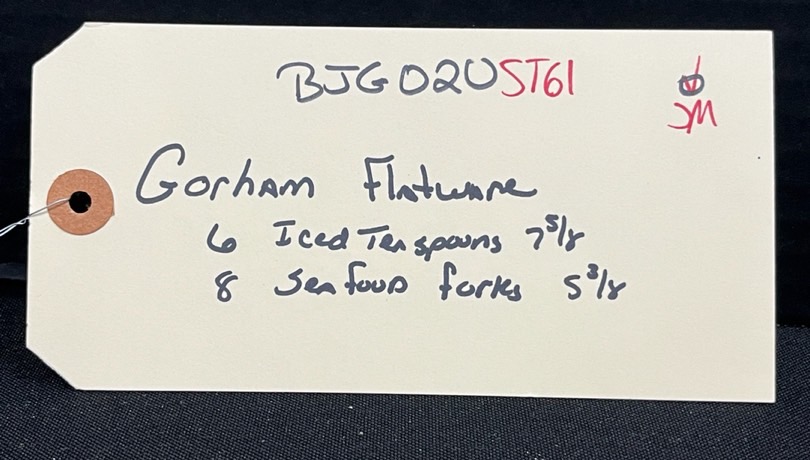 BJG020ST61
JM
Gorham Flatware
6 Iced Tea spoons 7 5/8
8 Seafood forks 5 3/8